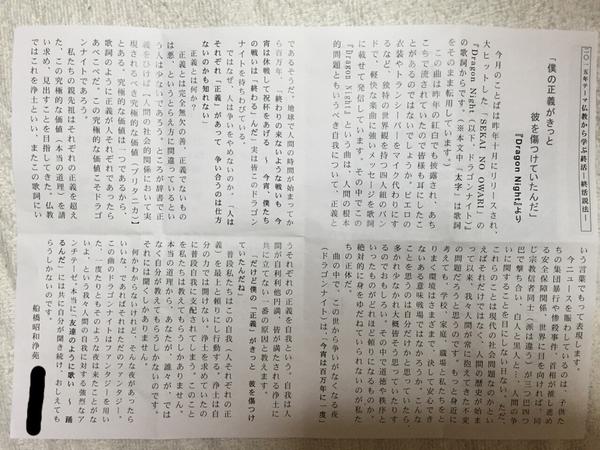 二〇一五年テーマ仏教から学ぶ終活|終活説法|
「僕の正義がきっと
彼を傷つけていたんだ」
『Dragon Night』より
今月のことばは昨年十月にリリースされ、
大ヒットした「SEKAI NO OWARI」の
『Dragon Night』(以下、ドラゴンナイト)
の歌詞からです。(※本文中「太字」は歌詞
をそのまま記しています。)
この曲は昨年の紅白でも披露され、あち
こちで流されていたので皆様も耳にしたこ
とがあるのではないでしょうか。ピエロの
衣装やトランシーバーをマイク代わりにす
るなど、独特の世界観を持つ四人組のバン
ドで、軽快な楽曲に強いメッセージを歌詞
に載せて発信しています。その中でこの
『Dragon Night』という曲は、人間の根本
的問題ともいうべき自我について、正義と
であるそうだ、地球で人間の時間が始まってか
ら百万年、「終わりの来ないような戦いも 今
宵は休戦して祝杯をあげる」「今宵、僕たち
の戦いは「終わる」んだ」実は皆このドラゴン
ナイトを待ちわびている。
ではなぜ、人は争いをやめないのか、「人は
それぞれ「正義」があって 争い合うのは仕方
ないのかも知れない」
正義とは何か。
正義とは完全無欠の善、正義でないもの
は悪、というとらえ方に間違っているとい
う人は少ないであろう。ところが辞書で正
義をひけば「人間の社会的関係において実
現されるべき究極的な価値」(ブリタニカ)
とある。究極的な価値は一つであるから、
歌詞のように正義が人それぞれであったら
あべこべだ。この究極的な価値こそドラゴ
ンナイトであろう。
私たちの親先祖はそれぞれの正義を超え
た、この究極的な価値(本当の道理)を請
い求め、見出すことを目指していきた。仏教
ではこれを浄土といい、またこの歌詞にい
いう言葉でもって表現します。
今ニュースを賑わしているのは、子供た
ちの集団暴行や惨殺事件、首相が推し進め
る安全保障関係、世界に目を向ければ、同
じ宗教信者同士(派は違う)が三つ巴四つ
巴で撃ち合い、自国民の要人と、人間の争
いに関することを目にし耳にします。ただ、
これらのことは現代の社会問題なのかとい
えばそれだけではなく、人間の歴史が始ま
って以来、我々人間が常に抱えてきた不変
の問題だろうと思うのです。もっと身近に
考えても、学校、家庭、職場と私たちをと
りまく環境はさまざまで、決して安心でき
ない、ある意味戦場ではなかろうか。こんな
ことを思うのは自分だけかと思っていたら
多かれ少なかれ大概皆そう思っていたりす
るのでおもしろい。その中で道徳や秩序と
いったものがどれほど頼りにならないのか。
絶対的に身をゆだねていられるものが私た
ちの正体だ。
曲の中で、この世からあらがなくなる夜
(ドラゴンナイト)は、「今宵は百万年に一度」
うそれぞれの正義を自我という。自我は人
間が自利利他円満、皆が満たされる浄土に
共に立てない一番の原因と教えます。
「だけど僕の「正義」がきっと 彼を傷つけ
ていたんだね」
普段私たちはこの自我(人それぞれの正
義)を最上と頼りにして行動する、浄土は自
分の力では開けない、浄土を求めていたの
に、普段自我に支配されてしまう。このこと
を自分が教えてもらうしかありません。
本当の道理から教えてもらうしか、誰がでは
なく自分が教えてもらうしかないのです。
それには聞くしかありません。
何かわからないけれど、そんな夜があったら
いいな、であればそれはただのファンタジー。
この曲のドラゴンナイトはファンタジーを用い
ながらも「ドラゴンナイト」は夜は来たことがな
いよ、という我々人間の自我に対する強烈なア
ンチテーゼ。本当に「友達のように歌い」～「踊
るんだ」には共に自分が聞き続け、おしえても
らうしかないのです。
船橋昭和浄苑